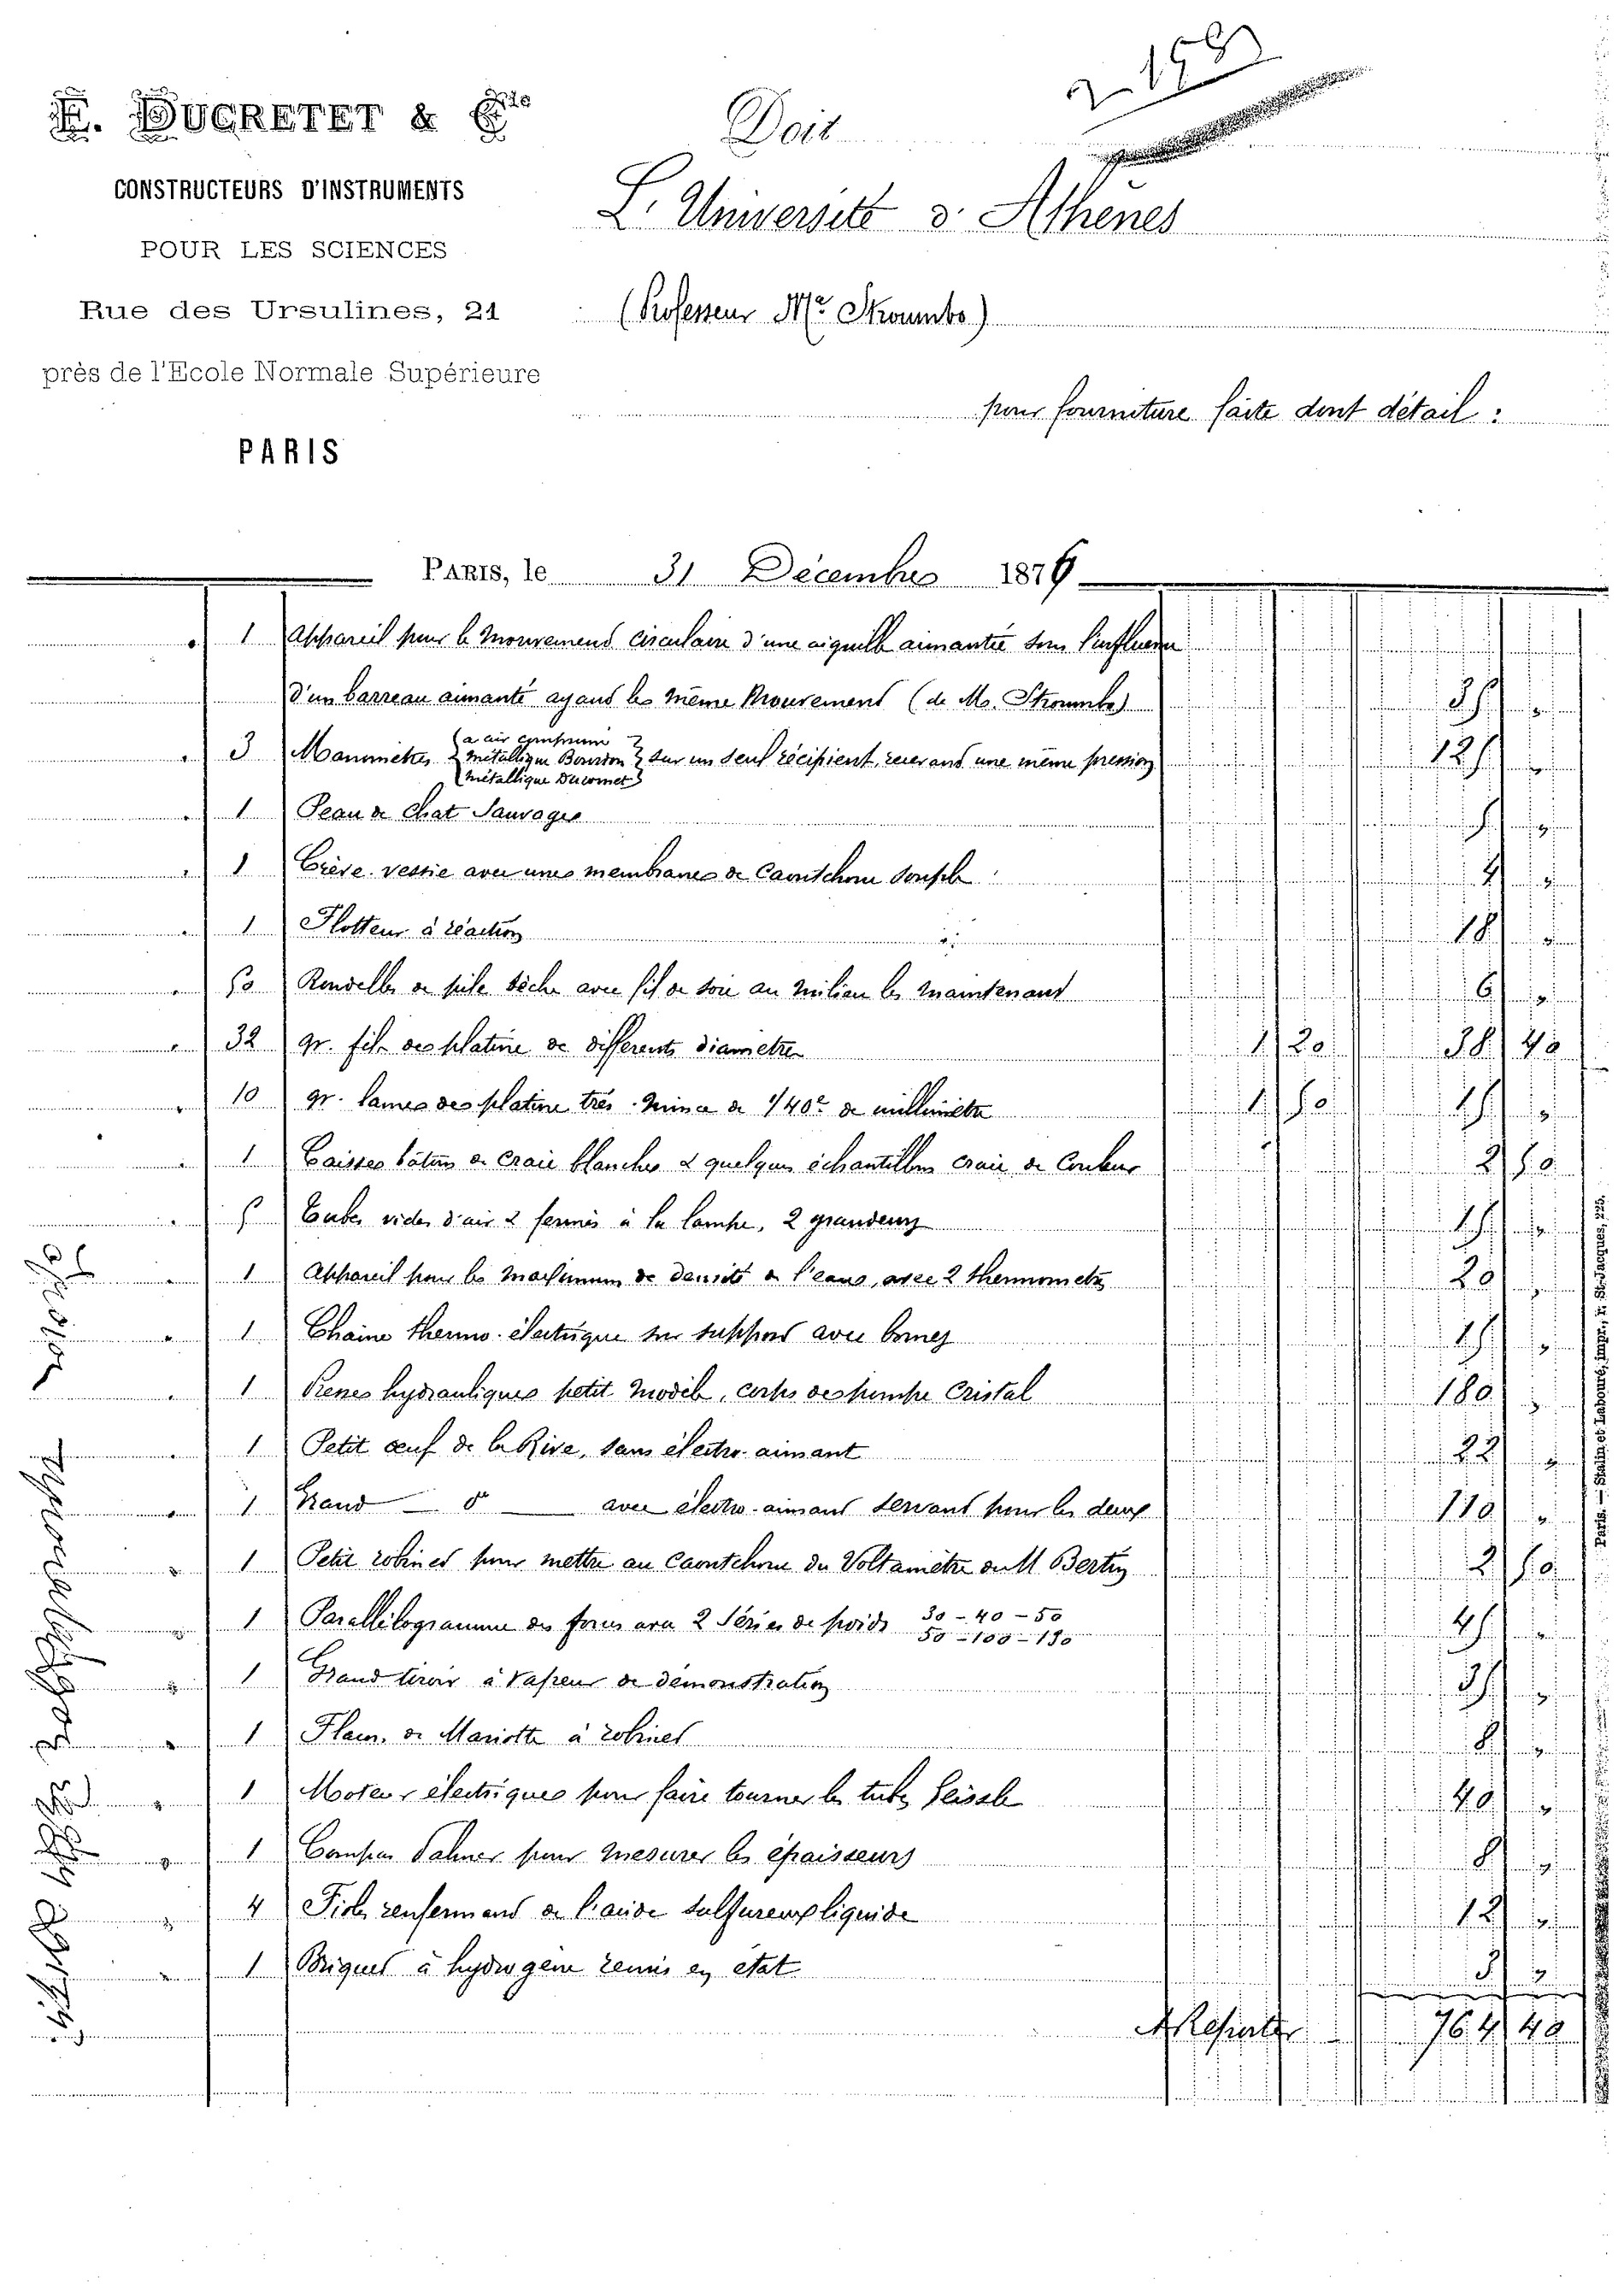 E. DUCRETET & Cie
CONSTRUCTEURS D'INSTRUMENTS
POUR LES SCIENCES
Rue des Ursulines, 21
près de l'Ecole Normale Supérieure
PARIS
Doit
L'Université d'Athènes
(Professeur Mr Stroumbo)
pour fourniture faite dont détail :
PARIS, le 31 Décembre 1876
1 Appareil pour le mouvement circulaire d'une aiguille aimantée sous l'influence
d'un barreau aimanté ayant le même mouvement (de Mr. Stroumbo) 35 "
3 Manomètres { à air comprimé } sur un seul récipient, recevant une même pression 125 "
métallique Bourdon
métallique Ducomet
1 Peau de Chat Sauvage 5 "
1 Crève-vessie avec une membrane de Caoutchouc souple 4 "
1 Flotteur à réaction 18 "
50 Rondelles de pile sèche avec fil de soie au milieu les maintenant 6 "
32 gr. fil de platine de différents diamètres 1 20 38 40
10 gr. lames de platine très mince de 1/40e de millimètre 1 50 15 "
1 Caisse bâtons de craie blanche & quelques échantillons craie de Couleur 2 50
5 Tubes vides d'air & fermés à la lampe, 2 grandeurs 15 "
1 Appareil pour le maximum de densité de l'eau, avec 2 thermomètres 20 "
1 Chaine thermo-électrique sur support avec bornes 15 "
1 Presse hydraulique petit modèle, corps de pompe Cristal 180 "
1 Petit œuf de la Rive, sans électro-aimant 22 "
1 Grand do avec électro-aimant servant pour les deux 110 "
1 Petit robinet pour mettre au Caoutchouc du Voltamètre de M Bertin 2 50
1 Parallélogramme des forces avec 2 Séries de poids 30 - 40 - 50 45 "
50 - 100 - 130
1 Grand tiroir à Vapeur de démonstration 35 "
1 Flacon de Mariotte à robinet 8 "
1 Moteur électrique pour faire tourner les tubes Geissler 40 "
1 Compas Palmer pour mesurer les épaisseurs 8 "
4 Fioles renfermant de l'acide sulfureux liquide 12 "
1 Briquet à hydrogène remis en état 3 "
A Reporter 764 40